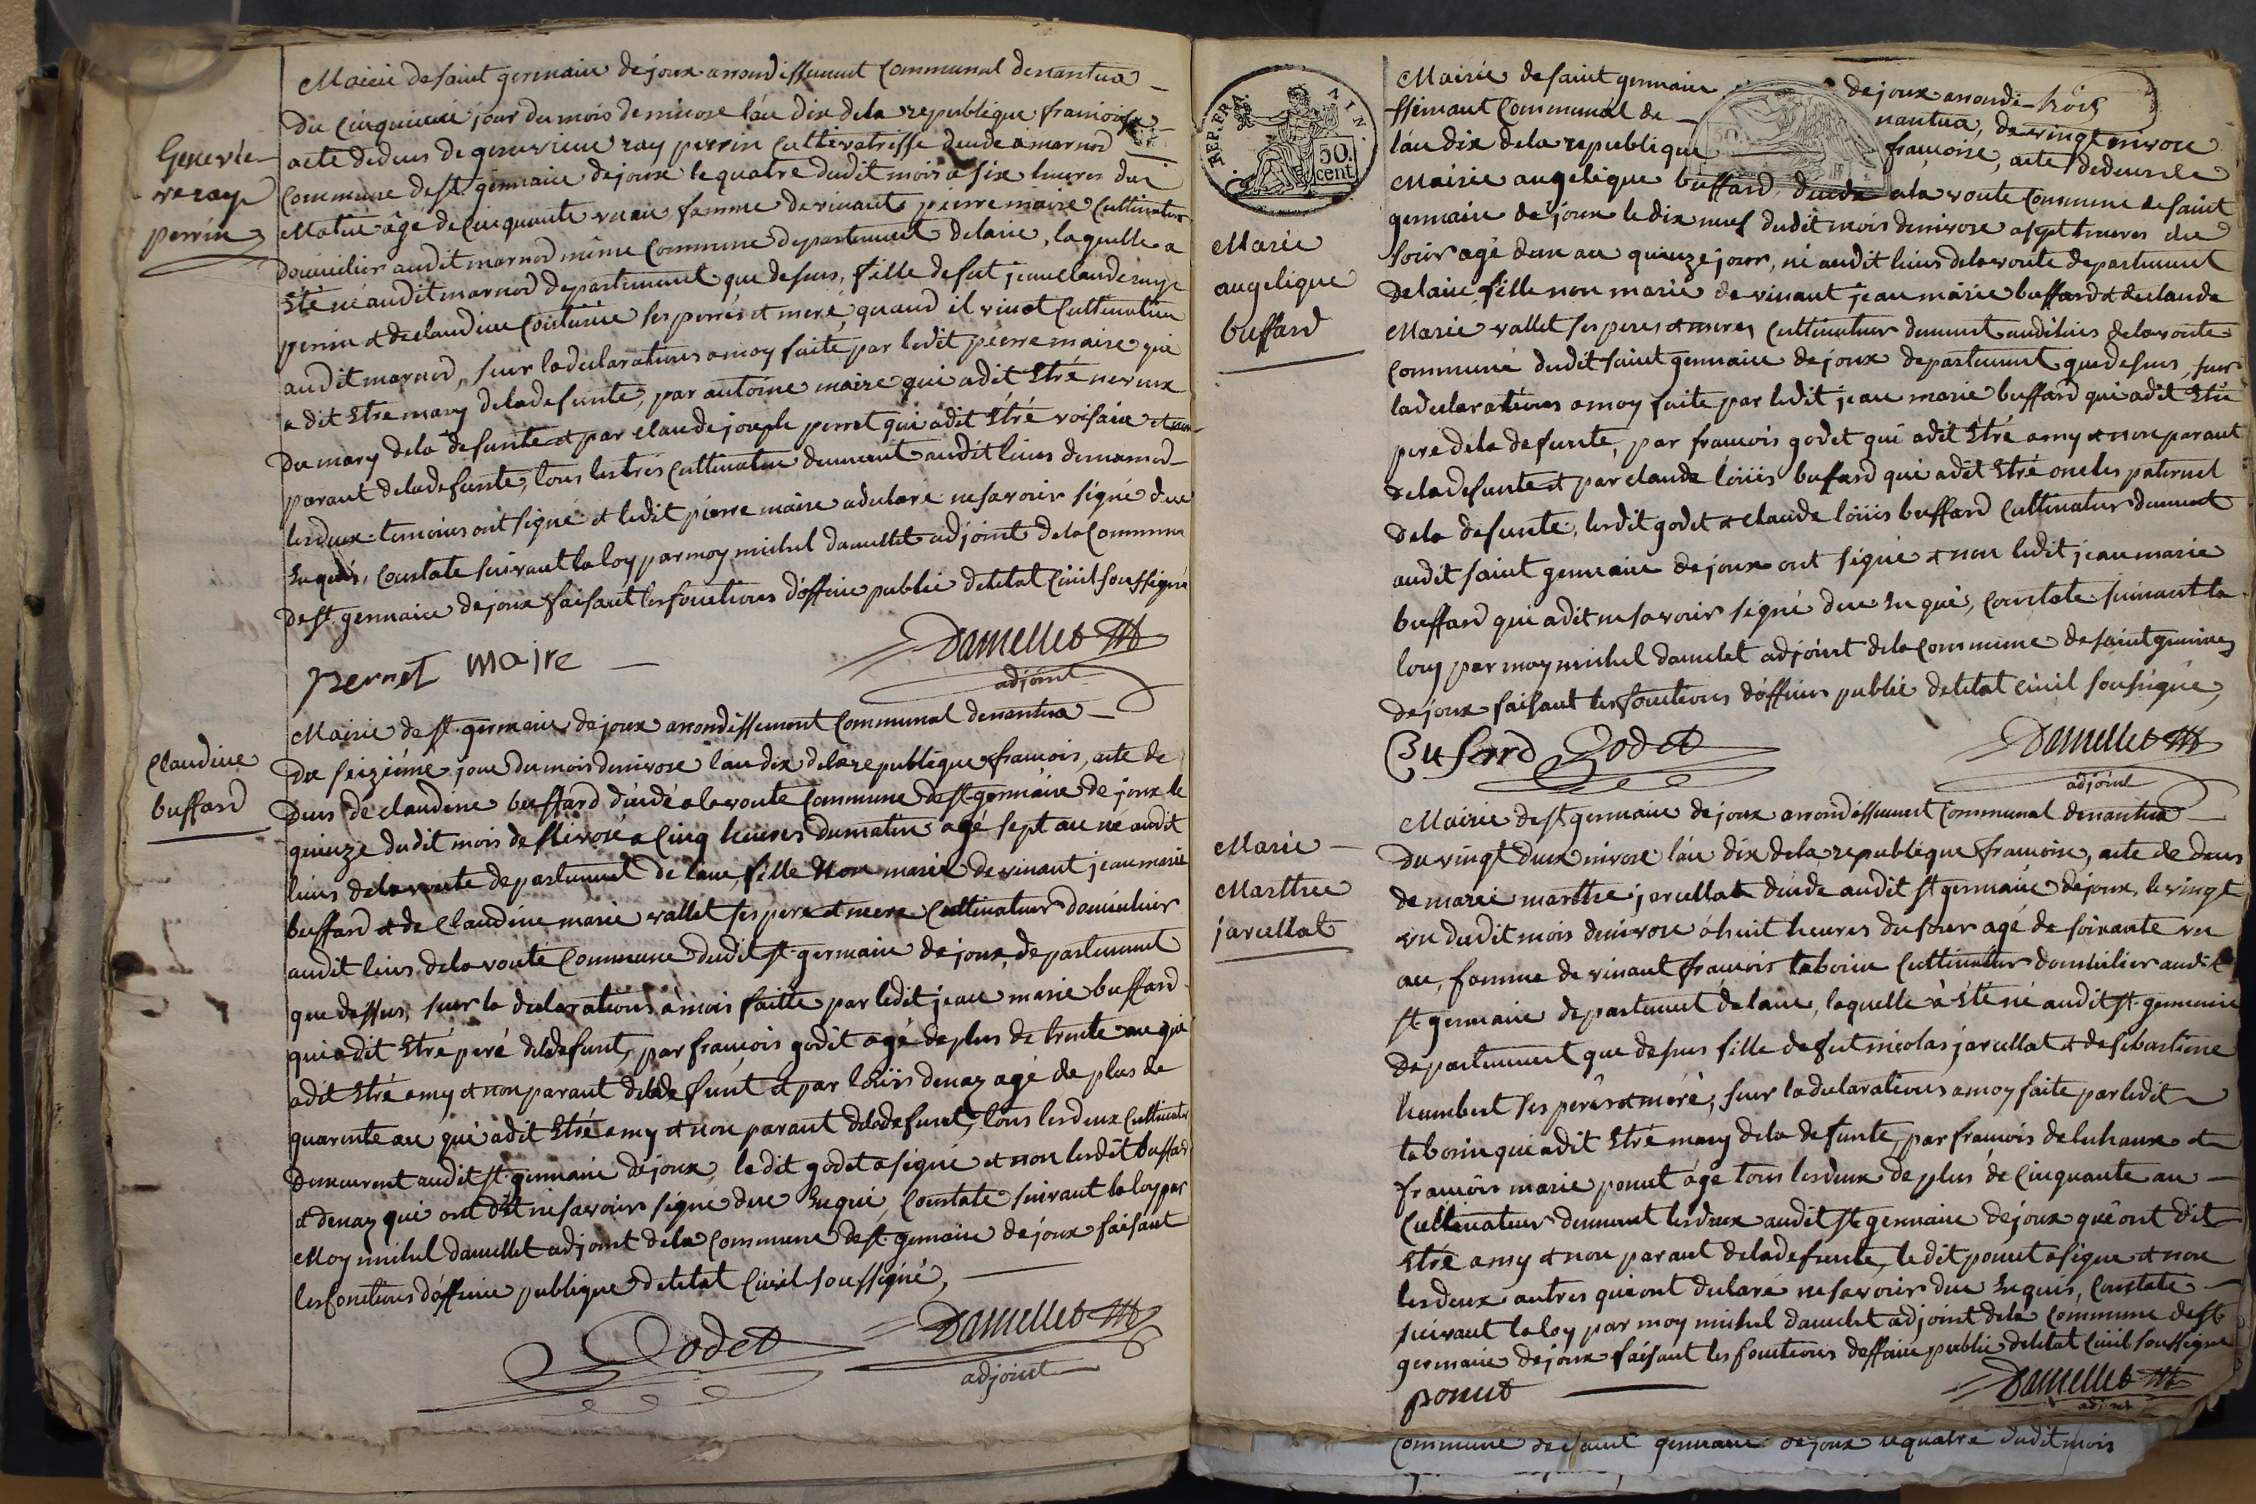 Mairie de saint germain de joux arrondissement Communal de nantua
Du Cinquieme jour du mois de nivose l'an dix de la republique francoise
acte de deces de genevieve ray perrin Cultivatrisse decede a marnod
Commune de st germain de joux le quatre dudit mois a six heures du
Matin âge de Cinquante un an famme de vivant pierre maire Cultivateur
domicilier audit marnod même Commune departement de lain, laquelle a
Eté né audit marnod departement que desus, fille de fut jean claude ray
perrin et de claudine ses perrés et meré quand il vivot Cultivateur
audit marnod, sur la declarations a moy faite par ledit pierre maire qui
a dit Etre mary de la defunte, par antoine maire qui a dit Etré neveux
du mary de la defunte et par claude joseph pernet qui a dit Etré voisain et non
parant de la defunte, tous les trés Cultivateur demeurant audit lieus de marnod
les deux temoins ont signé et ledit pierre maire a declaré ne savoir signé due
Enquis, Constate suivant la loy par moy michel damellet adjoint de la Commune
de st. germain de joux faisant les fonctions d'officie public de letat Civil soussigné
pernet maire
Damellet
adjoint
Genevie
ve ray
perrin
Mairie de st. germain de joux arrondissement Communal de nantua
Du seizième jour du mois de nivose l'an dix de la republique francois, acte de
deces de claudine buffard décédé a la voute Commune de st germain de joux le
quinze dudit mois de Nivose a Cinq heures du matin agé sept an né audit
lieus de la voute departement de lain, fille Non marié de vivant jean marie
buffard et de Claudine marie vallet ses pere et mere Cultivateur domicilier
audit lieus de la voute Commune dudit st germain de joux, departement
que dessus, sur la declarations à mois faitte par ledit jean marie buffard
qui a dit Etré peré de la defunt, par francois godet agé de plus de trente an qui
a dit Etré amy et non parant de la defunt et par loüis denaz agé de plus de
quarente an qui a dit Etré amy et non parant de la defunt, tous les deux Cultivateur
demeurent audit st germain de joux, le dit godet a signe et non lesdit buffard
et denaz qui ont dit ne savoir signé due Enqui, Constate suivant la loy par
Moy michel damellet adjoint de la Commune de st germain de joux faisant
les fonctions d'officie publique de letat Civil soussigné,
Godet
Damellet
adjoint
Claudine
buffard
REP. FRA.
50.
cent
Mairie de saint germain de joux arrondi
trois
ssemant Communal de nantua, du vingt nivose
l'an dix de la republique françoise, acte de deces de
Mairie angelique buffard decede a la voute Commune de saint
germain de joux le dix neuf dudit mois de nivose a sept heures du
soir agé dun an quinze jour, né audit lieus de la voute departement
de lain, fille non marié de vivant jean marie buffard et de claude
Marie vallet ses peres et meres, Cultivateur demeurt audi lieus de la voute
Communé dudit saint germain de joux departement que desus, sur
la declarations a moy faite par ledit jean marie buffard qui a dit Etré
pere de la defunte, par francois godet qui a dit Etré amy et non parant
de la defunte et par claude loüis buffard qui a dit Etré oncles paternel
de la defunte, lesdit godet et claude loüis buffard Cultivateur demeurt
audit saint germain de joux ont signé et non ledit jean marie
buffard qui a dit ne savoir signé due Enqui, Constate suivant la
loy par moy michel damelet adjoint de la Commune de saint germain
de joux faisant les fonctions d'officier public de letat Civil sousigné,
Buferd Godet
Damellet
adjoint
Marie
angelique
buffard
Mairie de st germain de joux arrondissement Communal de nantua
Du vingt deux nivose l'an dix de la republique francoise, acte de deces
de marie marthe jarcellat décede audit st germain de joux, le vingt
un dudit mois de nivose à huit heures du soir agé de soixante un
an, famme de vivant francois tabouin Cultivateur domicilier audit
st germain departement de lain, laquelle à Eté né audit st germain
departement que desus fille de fut nicolas jarcellat et de sebastiene
humbert ses perés et meré, sur la declarations a moy faite par ledit
tabouin qui a dit Etré mary de la defunte, par francois deluchaux et
françois marie ponut âgé tous les deux de plus de Cinquante an
Cultivateur demeurt les deux audit st germain de joux qui ont dit
Etré amy et non parant de la defunte, le dit ponut a signe et non
les deux autres qui ont declaré ne savoir due Enquis, Constate
suivant la loy par moy michel damelet adjoint de la Commune de st
germain de joux faisant les fonctions d'officie public de letat Civil soussigne
ponut
Damellet
adjoint
Marie
Marthe
jarcellat
Commune de saint germain de joux le quatre dudit mois